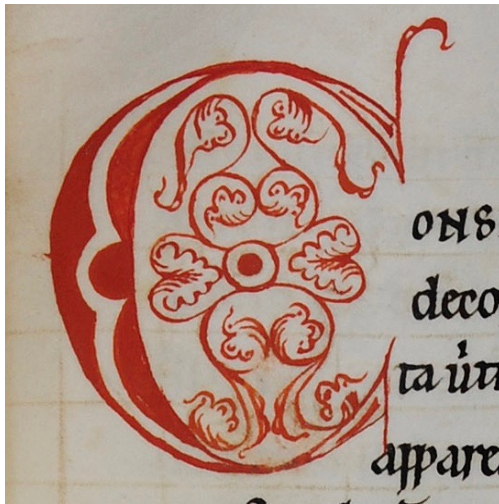 C
ONS
deco
ta úta
appare